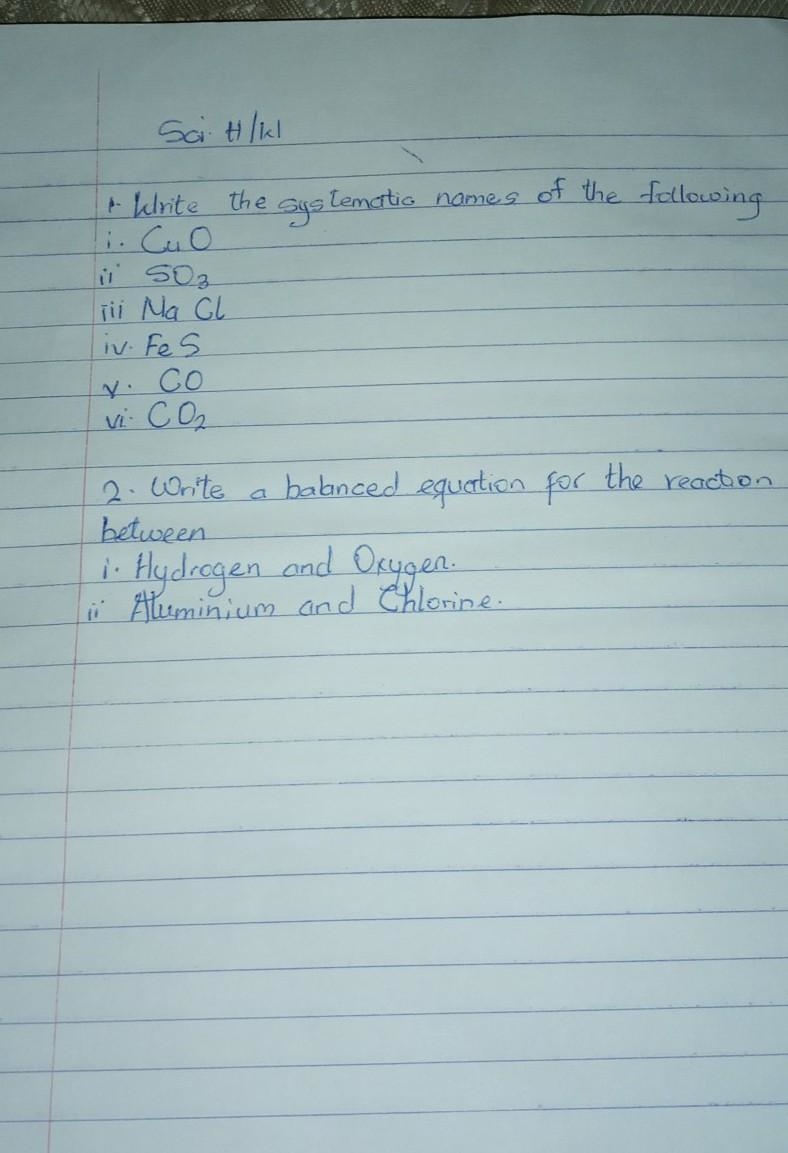 Sci H/W
1. Write the systematic names of the following
i. CuO
ii SO₃
iii NaCl
iv. FeS
v. CO
vi. CO₂
2. Write a balanced equation for the reaction
between
i. Hydrogen and Oxygen.
ii Aluminium and Chlorine.